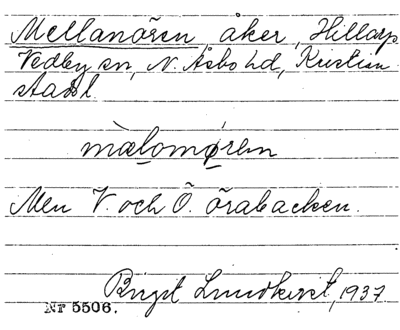 Mellanören, åker, Hillarps
Vedby sn, N. Åsbo hd, Kristian-
stads l.
mælomørem
Men V. och Ö. örabacken.
Birgit Lundkvist, 1937
Nr 5506.